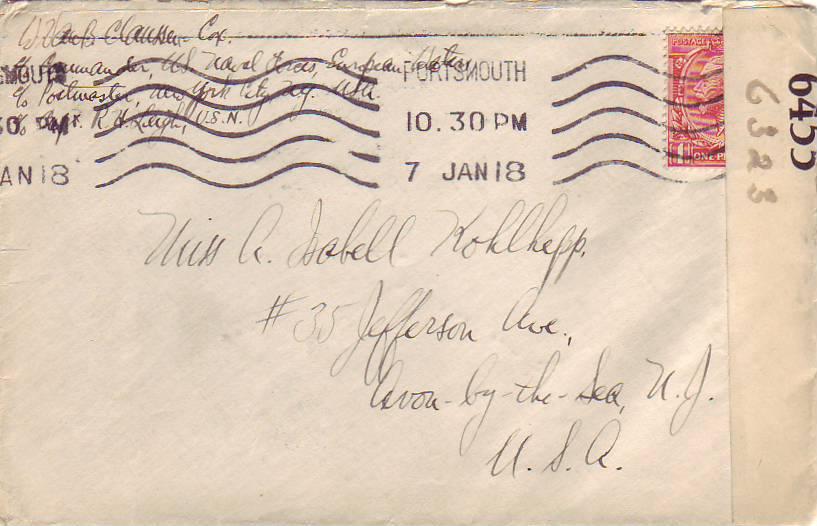 Claussen Cox.
c/o Commander, U.S. Naval Forces, European
c/o Postmaster, New York City, N.Y. USA.
c/o Capt. R. H. Leigh, U.S.N.
MOUTH
30 PM
AN 18
PORTSMOUTH
10.30 PM
7 JAN 18
POSTAGE
ONE P
6455
6323
Miss A. Isabell Kohlhepp,
#35 Jefferson Ave.,
Avon-by-the-Sea, N.J.
U.S.A.